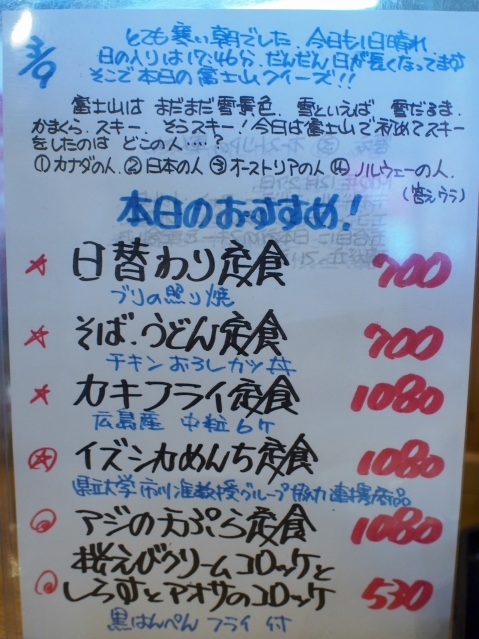 3/9
とても寒い朝でした。今日も1日晴れ。
日の入りは17:46分。だんだん日が長くなってます
そこで本日の富士山クイーズ!!
富士山は まだまだ雪景色。雪といえば 雪だるま.
かまくら.スキー. そうスキー!今日は富士山で初めてスキー
をしたのは どこの人…?
①カナダの人.②日本の人③オーストリアの人④ノルウェーの人.
(答えウラ)
本日のおすすめ!
日替わり定食 700
ブリの照り焼
そば.うどん定食 700
チキンおろしカツ丼
カキフライ定食 1080
広島産 中粒6ケ
イズシカめんち定食 1080
県立大学 市川准教授グループ協力
アジの天ぷら定食 1080
桜えびクリームコロッケと
しらすとアオサのコロッケ 530
黒はんぺん フライ 付